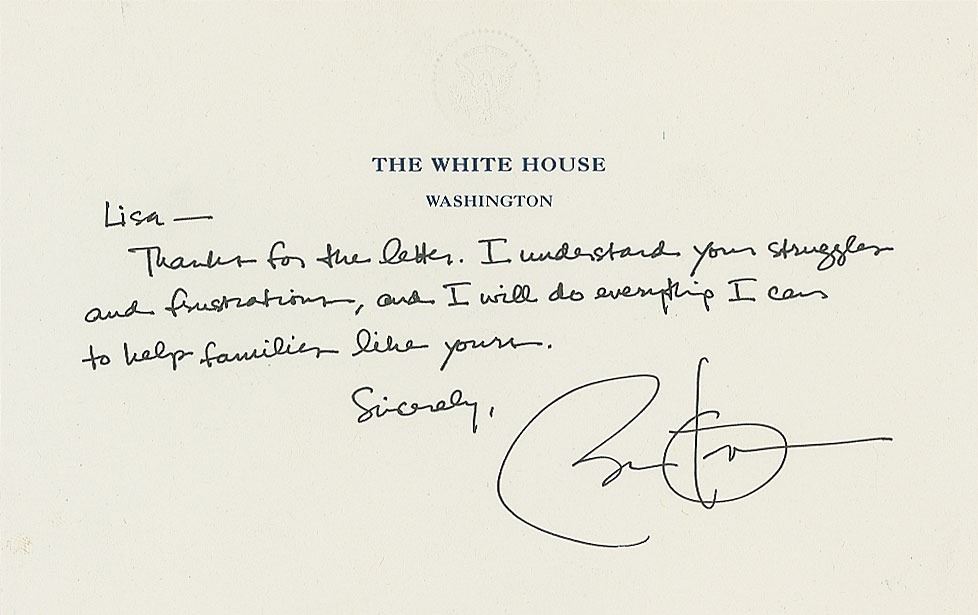 THE WHITE HOUSE
WASHINGTON
Lisa —
Thanks for the letter. I understand your struggles
and frustrations, and I will do everything I can
to help families like yours.
Sincerely,